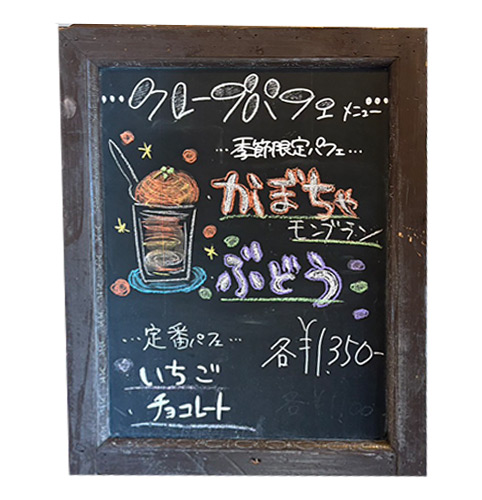 ...クレープパフェメニュー...
...季節限定パフェ...
かぼちゃ
モンブラン
ぶどう
各¥1,350-
...定番パフェ...
いちご
チョコレート